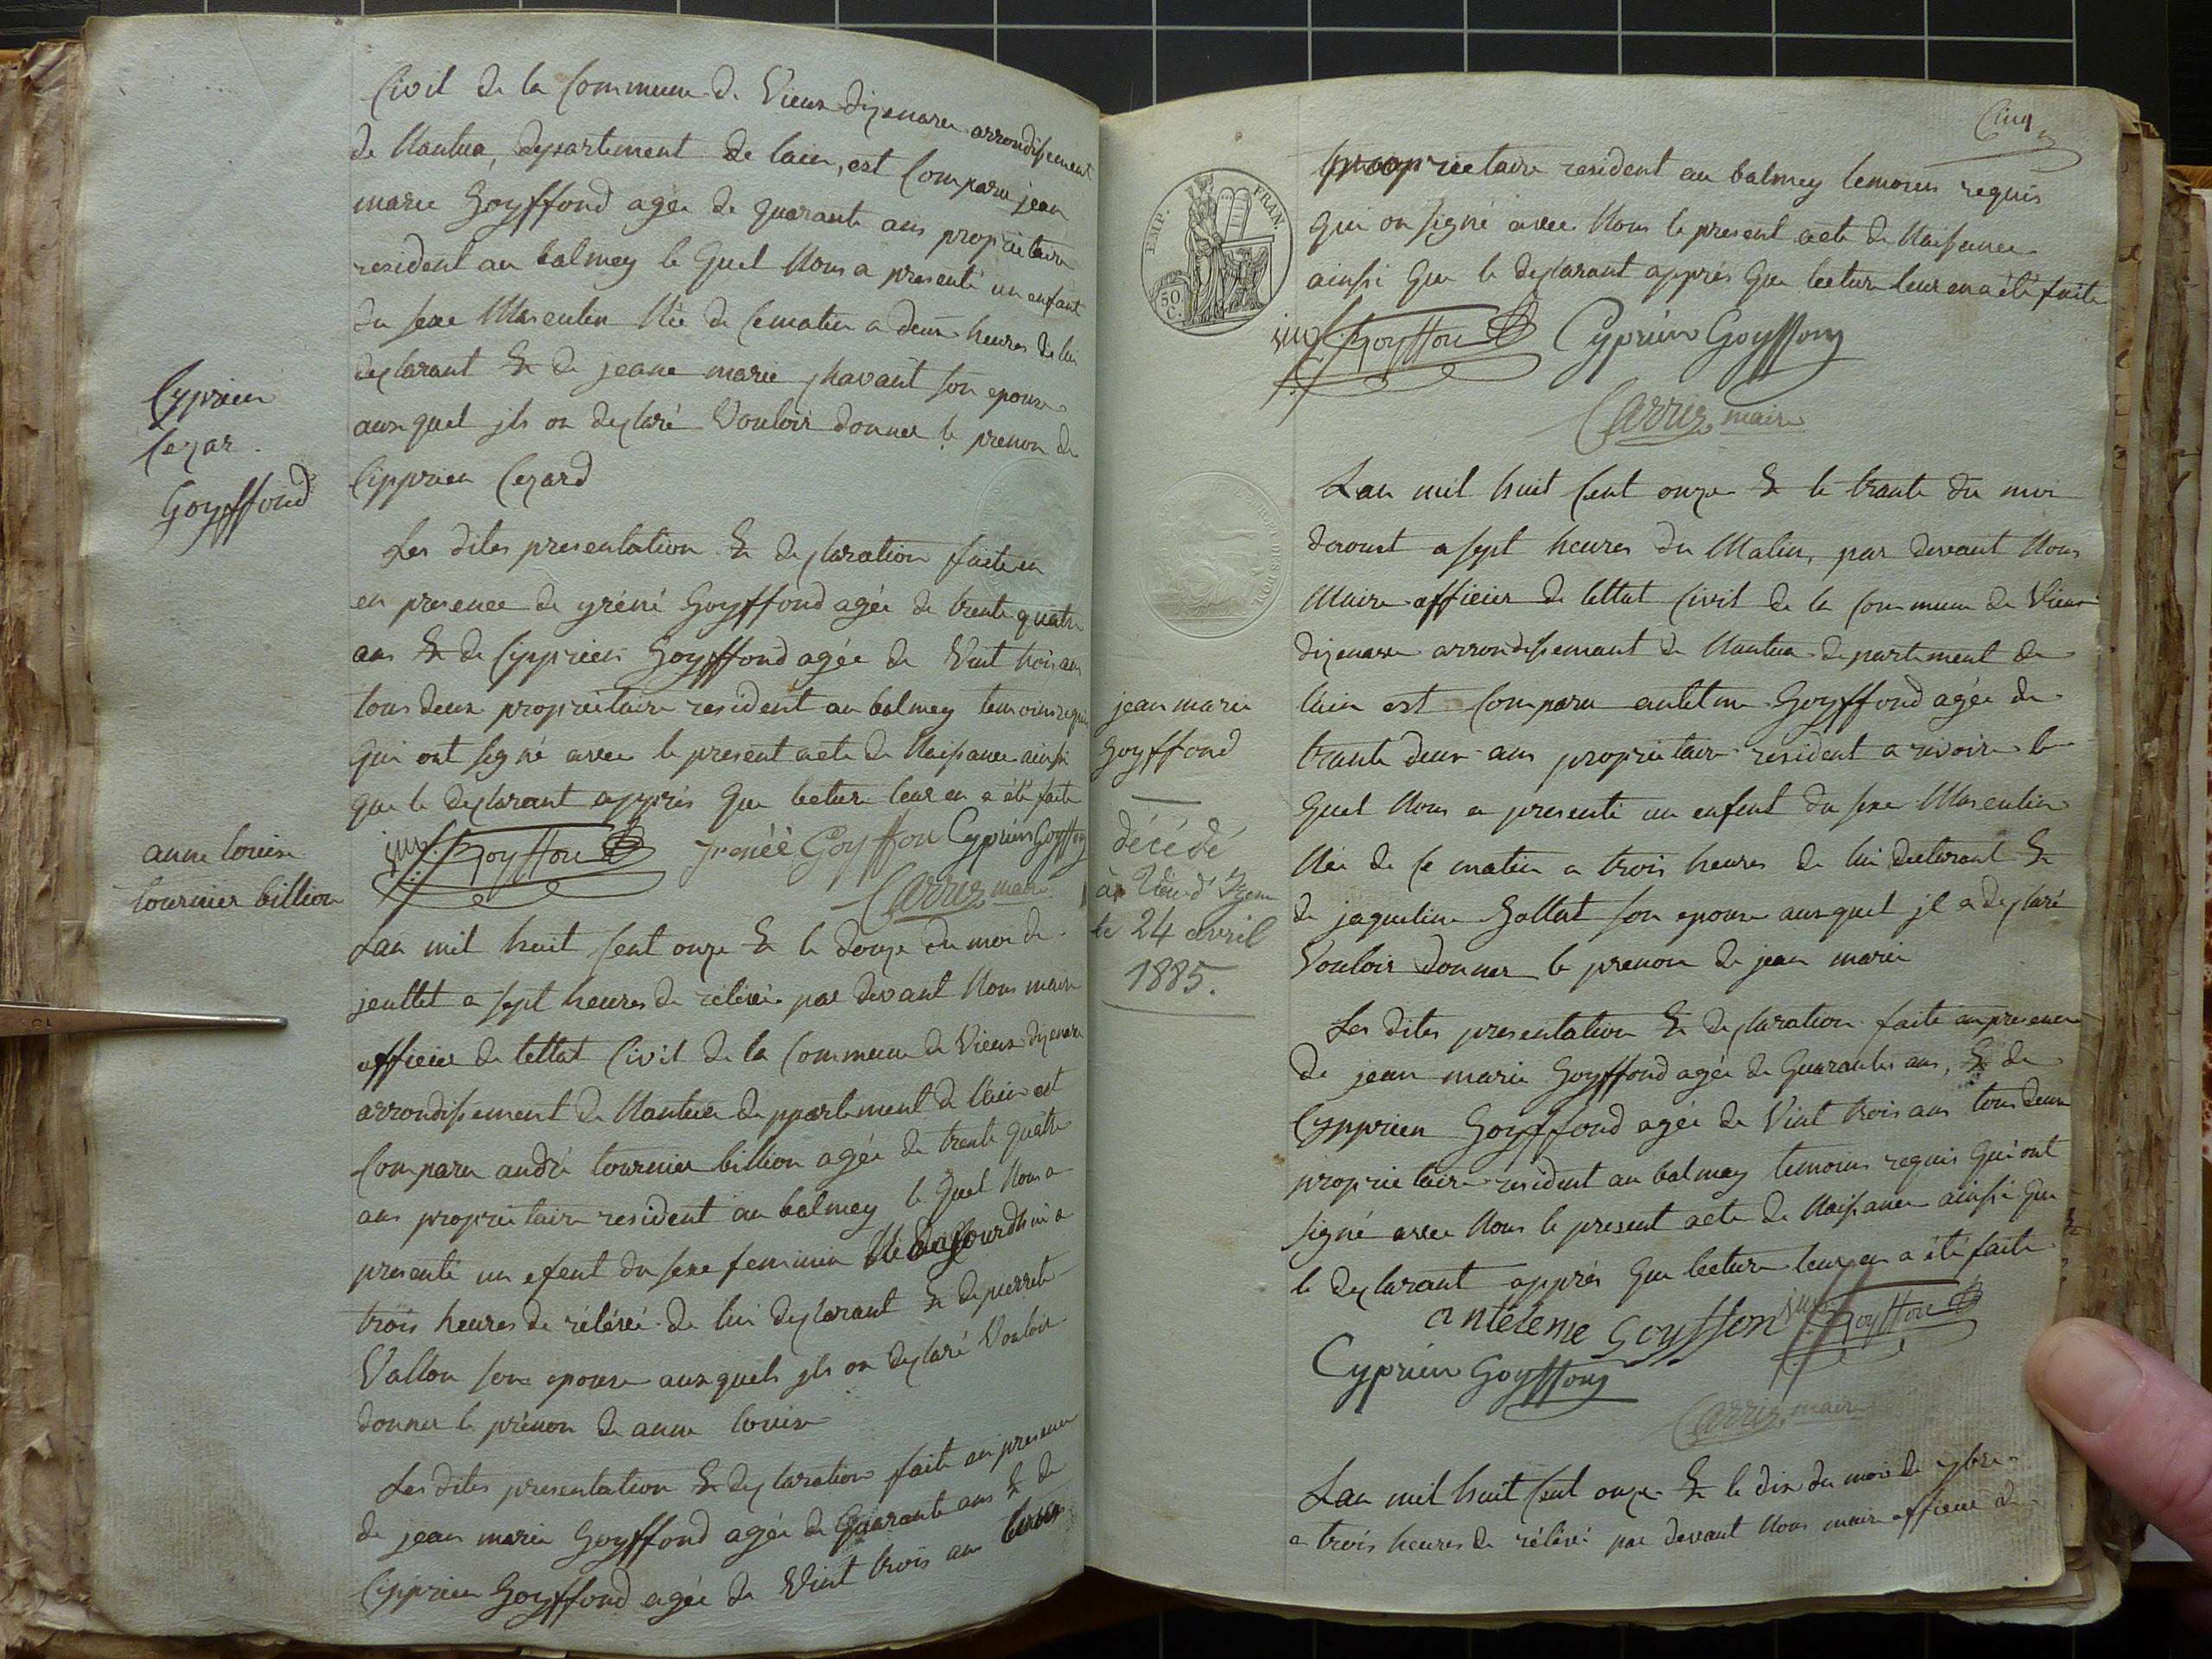 Civil de la Commune de Vieux dizenave arrondissement
de Nantua, departement de lain, est Comparu jean
marie Goyffond agée de quarante ans proprietaire
resident au balmey le quel Nous a presenté un enfant
du sexe Masculin Née de Cematin a deux heures de lui
declarant & de jeane marie jhavant son epouse
aux quel jls on declaré Vouloir donner le prenon de
Cipprien Cezard
Cyprien
Cezar
Goyffond
Les dites presentation & declaration faite en
en presence de yréné Goyffond agée de trente quatre
ans & de Cypprien Goyffond agée de Vint trois ans
tous deux proprietaire resident au balmey temoins requis
qui ont signé avec le present acte de Naissance ainsi
que le declarant apprés que lecture leur en a été faite
jm Goyffon jrénéé Goyffon Cyprién Goyffon
Carrier maire
anne louise
tournier billion
Lan mil huit Cent onze & le douze du moi de
jeuttet a sept heures de rélévée par devant Nous maire
officier de lettat Civil de la Commune de Vieux dizenave
arrondissement de Nantua deppartement de lain est
Comparu andré tournier billion agée de trente quatre
ans proprietaire resident au balmey le quel Nous a
presenté un efent du sexe feminin Né aujourdhui a
trois heures de rélévée de lui declarant & de pierrete
Vallon son epouse aux quels jls on declaré Vouloir
donner le prénon de anne louise
Les dites presentation & declaration faite en presence
de jean marie Goyffond agée de quarante ans & de
Cipprien Goyffond agée de Vint trois ans
Cinq
EMP. FRAN.
50 C.
proprietaire resident au balmey temoins requis
qui on signé avec Nous le present acte de Naissance
ainsi que le declarant apprés que lecture leur en a été faite
jm Goyffon Cyprién Goyffon
Carrier maire
Lan mil huit Cent onze & le trante du moi
daoust a sept heures du Matin, par devant Nous
Maire officier de lettat Civil de la Commune de Vieux
dizenave arrondissemant de Nantua departement de
lain est Comparu antelme Goyffond agée de
trante deux ans proprietaire resident a rivoire le
quel Nous a presenté un enfent du sexe Masculin
Née de Ce matin a trois heures de lui declarant &
de jaqueline Gallat son epouse aux quel jl a declaré
Vouloir donner le prenon de jean marie
jean marie
Goyffond
décédé
à Vieu d'Izen
le 24 avril
1885.
Les dites presentation & declaration faite en presence
de jean marie Goyffond agée de quarante ans, & de
Cypprien Goyffond agée de Vint trois ans tous deux
proprietaire résident au balmey temoins requis qui ont
signé avec Nous le present acte de Naissance ainsi que
le declarant apprés que lecture leur en a été faite
antéleme Goyffon jm Goyffon
Cyprién Goyffon
Carrier maire
Lan mil huit Cent onze & le dix du moi de 7bre
a trois heures de rélévé par devant Nous maire officier de